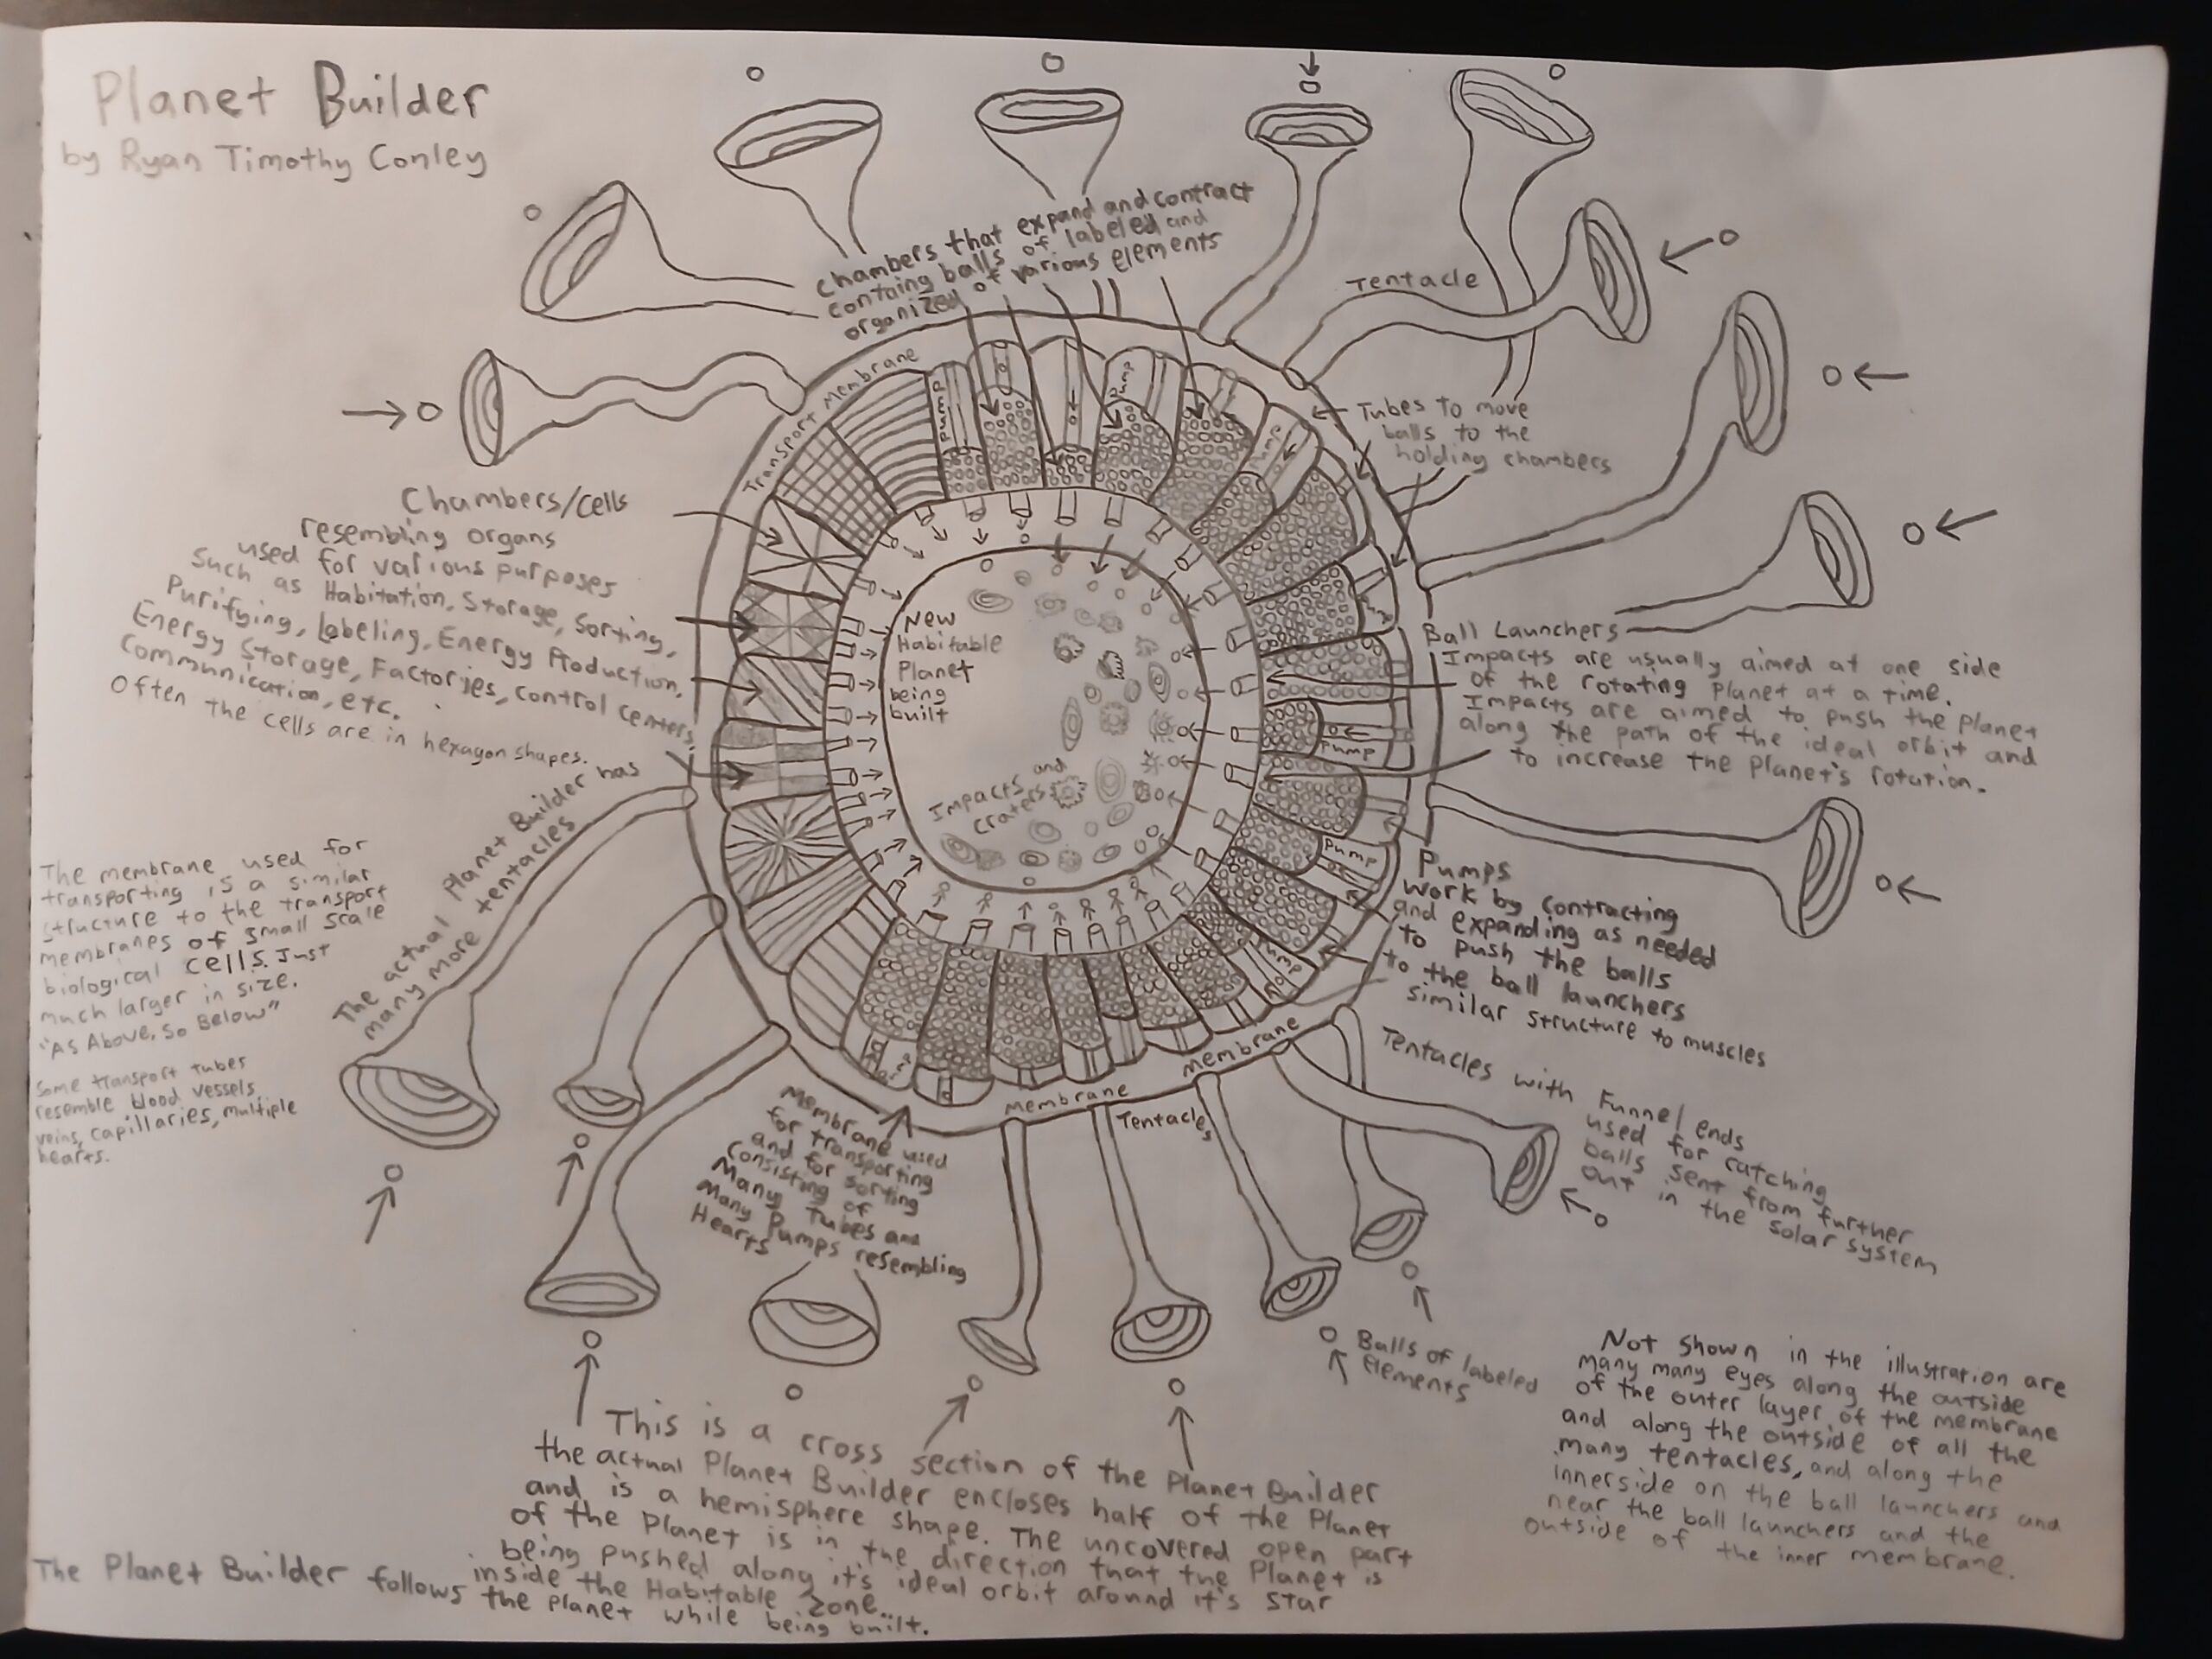 Planet Builder
by Ryan Timothy Conley
chambers that expand and contract
containg balls of labeled and
organized of various elements
Tentacle
Tubes to move
balls to the
holding chambers
Transport Membrane
Pump
Pump
Pump
Pump
Pump
Pump
Pump
Pump
Chambers/Cells
resembling organs
used for various purposes
such as Habitation, Storage, Sorting,
Purifying, Labeling, Energy Production,
Energy Storage, Factories, control centers,
Communication, etc.
Often the cells are in hexagon shapes.
New
Habitable
Planet
being
built
Impacts and
craters
Ball Launchers
Impacts are usually aimed at one side
of the rotating planet at a time.
Impacts are aimed to push the planet
along the path of the ideal orbit and
to increase the planet's rotation.
Pumps
work by contracting
and expanding as needed
to push the balls
to the ball launchers
similar structure to muscles
The actual Planet Builder has
many more tentacles
The membrane used for
transporting is a similar
structure to the transport
membranes of small scale
biological cells. Just
much larger in size.
"As Above, So Below"
Some transport tubes
resemble blood vessels,
veins, capillaries, multiple
hearts.
Membrane
Membrane
Tentacles
Membrane used
for transporting
and for sorting
consisting of
Many Tubes and
Many Pumps resembling
Hearts
Tentacles with Funnel ends
used for catching
balls sent from further
out in the solar system
Balls of labeled
elements
This is a cross section of the Planet Builder
the actual Planet Builder encloses half of the Planet
and is a hemisphere shape. The uncovered open part
of the Planet is in the direction that the Planet is
being pushed along it's ideal orbit around it's star
inside the Habitable Zone...
The Planet Builder follows the planet while being built.
Not shown in the illustration are
many many eyes along the outside
of the outer layer of the membrane
and along the outside of all the
many tentacles, and along the
innerside on the ball launchers and
near the ball launchers and the
outside of the inner membrane.